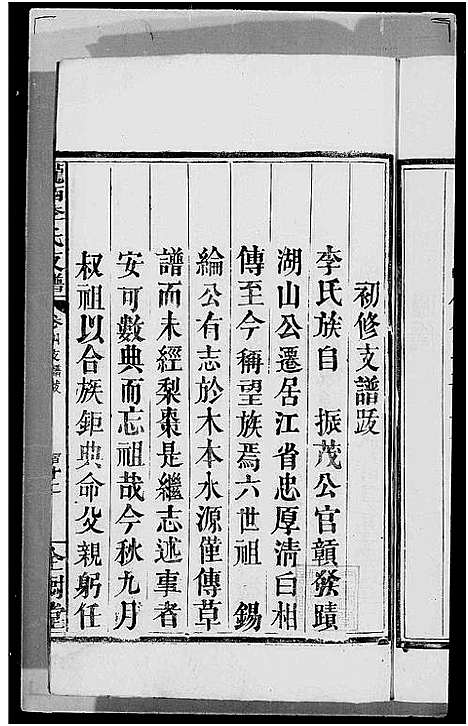 初修支譜跋
李氏族自 振茂公官贛發蹟
湖山公遷居江省忠厚清白相
傳至今稱望族焉六世祖 錫
綸公有志於木本水源僅傳草
譜而未經梨棗是繼志述事者
安可數典而忘祖哉今秋九月
叔祖以合族鉅典命父親躬任
隴西李氏支譜 卷四支譜跋